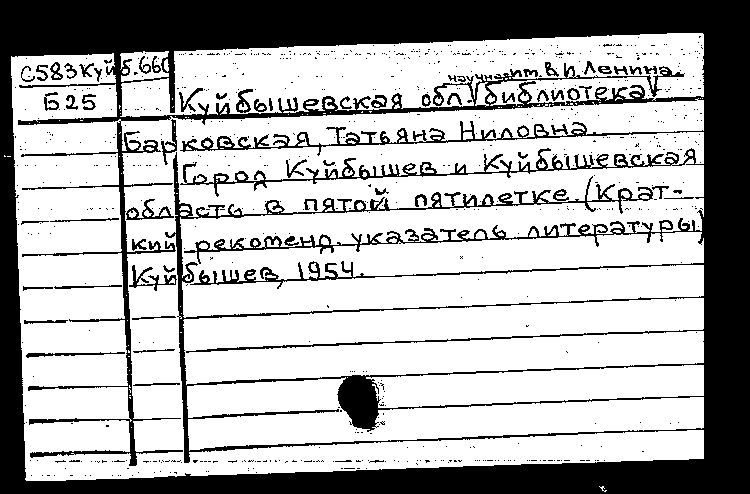 С583Куйб.660
научная им. В.И. Ленина.
Б25 Куйбышевская обл. библиотека
Барковская, Татьяна Ниловна.
Город Куйбышев и Куйбышевская
область в пятой пятилетке. (Крат-
кий рекоменд. указатель литературы)
Куйбышев, 1954.